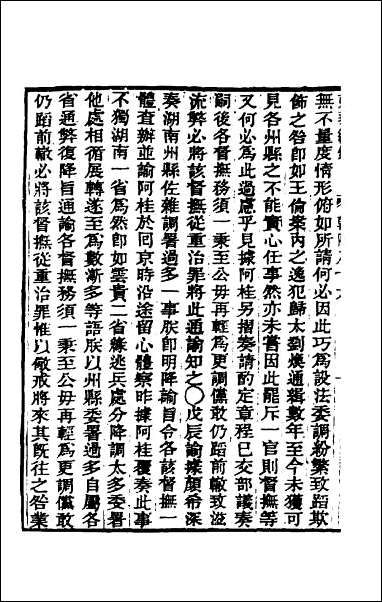 無不量度情形俯如所請何必因此巧為設法委調粉繁致蹈欺
飾之咎卽如王倫案內之逸犯歸太到煥通緝數年至今未獲可
見各州縣之不能實心任事然亦未嘗因此罷斥一官則督撫等
又何必為此過慮乎見據阿桂另摺奏請酌定章程已交部議奏
嗣後各督撫務須一秉至公毋再輕為更調儻敢仍蹈前轍致滋
流弊必將該督撫從重治罪將此通諭知之〇戊辰諭據顏希深
奏湖南州縣佐雜調署過多一事朕卽明降諭旨令各該督撫一
體查辦並諭阿桂於囘京時沿途留心體察昨據阿桂覆奏此事
不獨湖南一省為然卽如雲貴二省緣逃兵處分降調太多委署
他處相循展轉遂至為數漸多等語朕以州縣委署過多自屬各
省通弊復降旨通諭各督撫務須一秉至公毋再輕為更調儻敢
仍蹈前轍必將該督撫從重治罪惟以儆戒將來其旣往之咎業